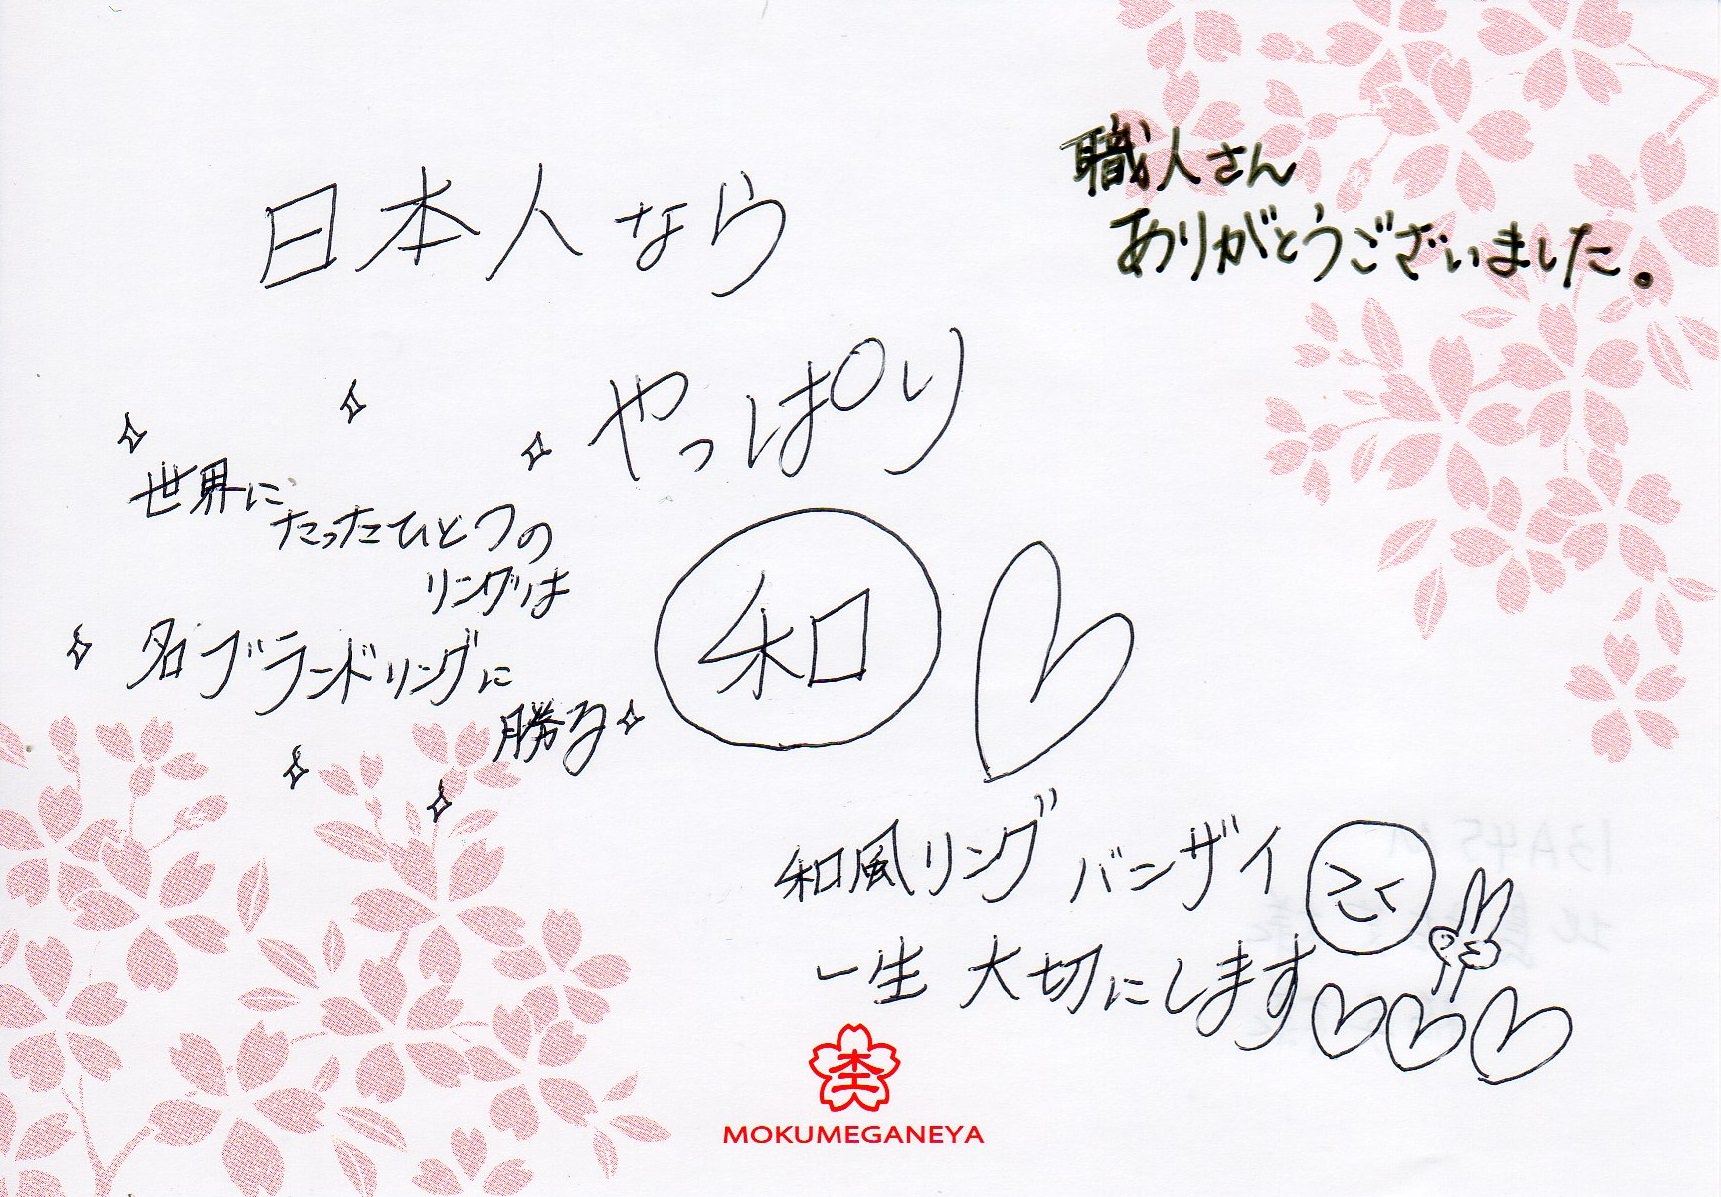 職人さん
ありがとうございました。
日本人なら
やっぱり
和
世界に
たったひとつの
リングは
名ブランドリングに
勝る
和風リング バンザイ
一生 大切にします
MOKUMEGANEYA